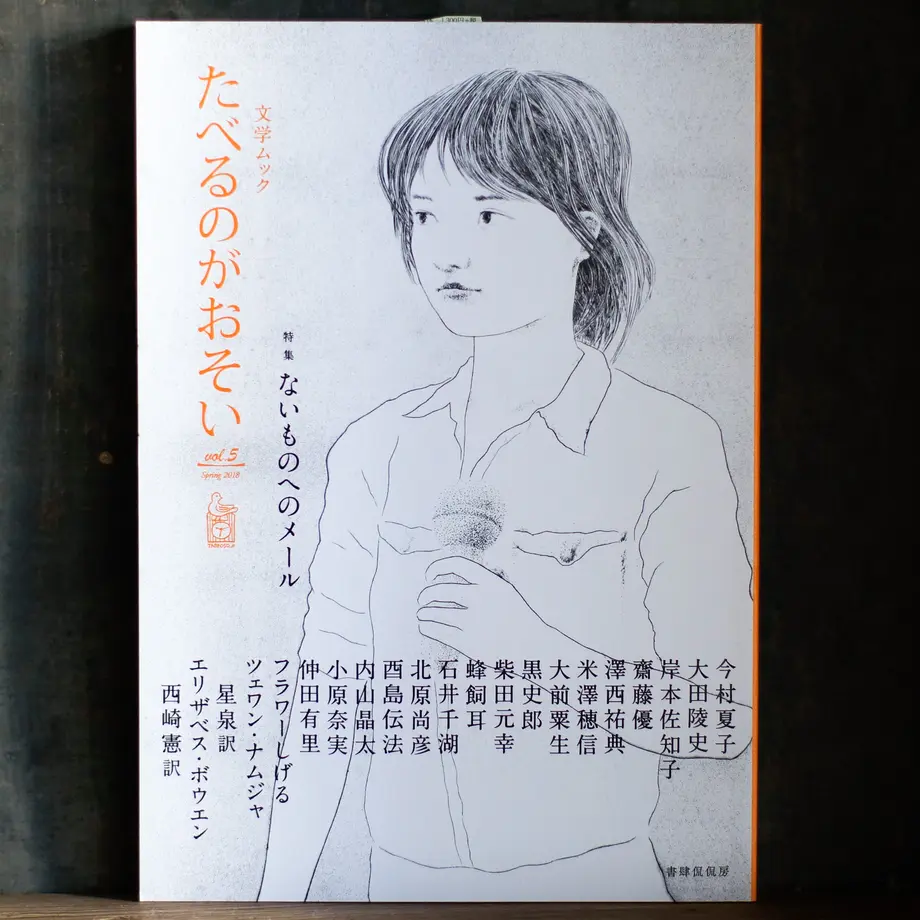 文学ムック
たべるのがおそい
vol.5
Spring 2018
特集
ないものへのメール
今村夏子
大田陵史
岸本佐知子
齋藤優
澤西祐典
米澤穂信
大前粟生
黒史郎
柴田元幸
蜂飼耳
石井千湖
北原尚彦
酉島伝法
内山晶太
小原奈実
仲田有里
フラワーしげる
ツェワン・ナムジャ
星泉訳
エリザベス・ボウエン
西崎憲訳
書肆侃侃房